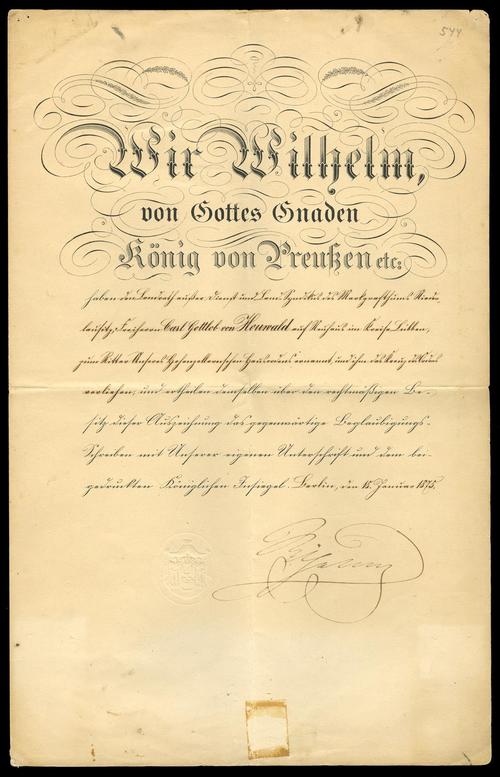 544
Wir Wilhelm,
von Gottes Gnaden
König von Preußen etc:
haben den Landrath außer Dienst und Land-Syndikus des Markgrafthums Nieder-
lausitz, Freiherrn Carl Gottlob von Houwald auf Neuhaus im Kreise Lübben,
zum Ritter Unseres Hohenzollernschen Hausordens ernannt, und ihm das Kreuz der
verliehen, und ertheilen demselben über den rechtmäßigen Be-
sitz dieser Auszeichnung das gegenwärtige Beglaubigungs-
Schreiben mit Unserer eigenen Unterschrift und dem bei-
gedruckten Königlichen Insiegel. Berlin, den 18. Januar 1875.
Wilhelm